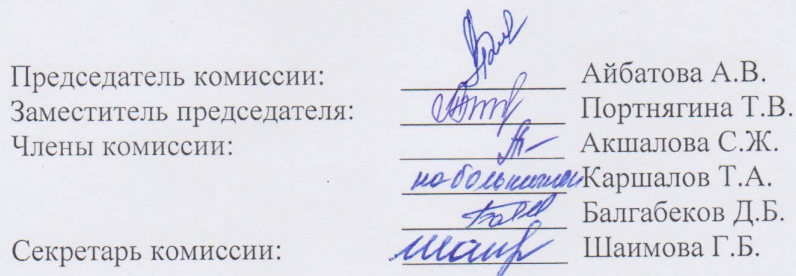 Председатель комиссии: Айбатова А.В.
Заместитель председателя: Портнягина Т.В.
Члены комиссии: Акшалова С.Ж.
на больничном Каршалов Т.А.
Балгабеков Д.Б.
Секретарь комиссии: Шаимова Г.Б.